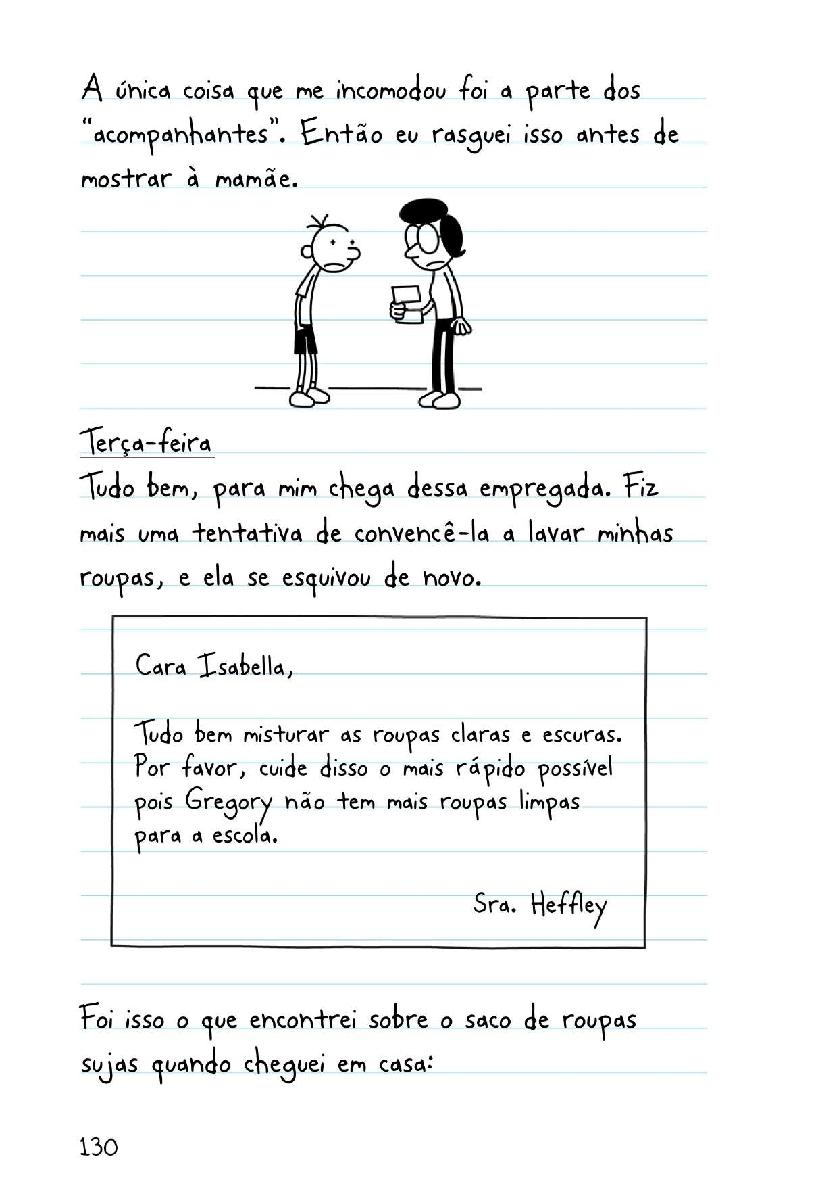 A única coisa que me incomodou foi a parte dos
“acompanhantes”. Então eu rasguei isso antes de
mostrar à mamãe.
Terça-feira
Tudo bem, para mim chega dessa empregada. Fiz
mais uma tentativa de convencê-la a lavar minhas
roupas, e ela se esquivou de novo.
Cara Isabella,
Tudo bem misturar as roupas claras e escuras.
Por favor, cuide disso o mais rápido possível
pois Gregory não tem mais roupas limpas
para a escola.
Sra. Heffley
Foi isso o que encontrei sobre o saco de roupas
sujas quando cheguei em casa:
130